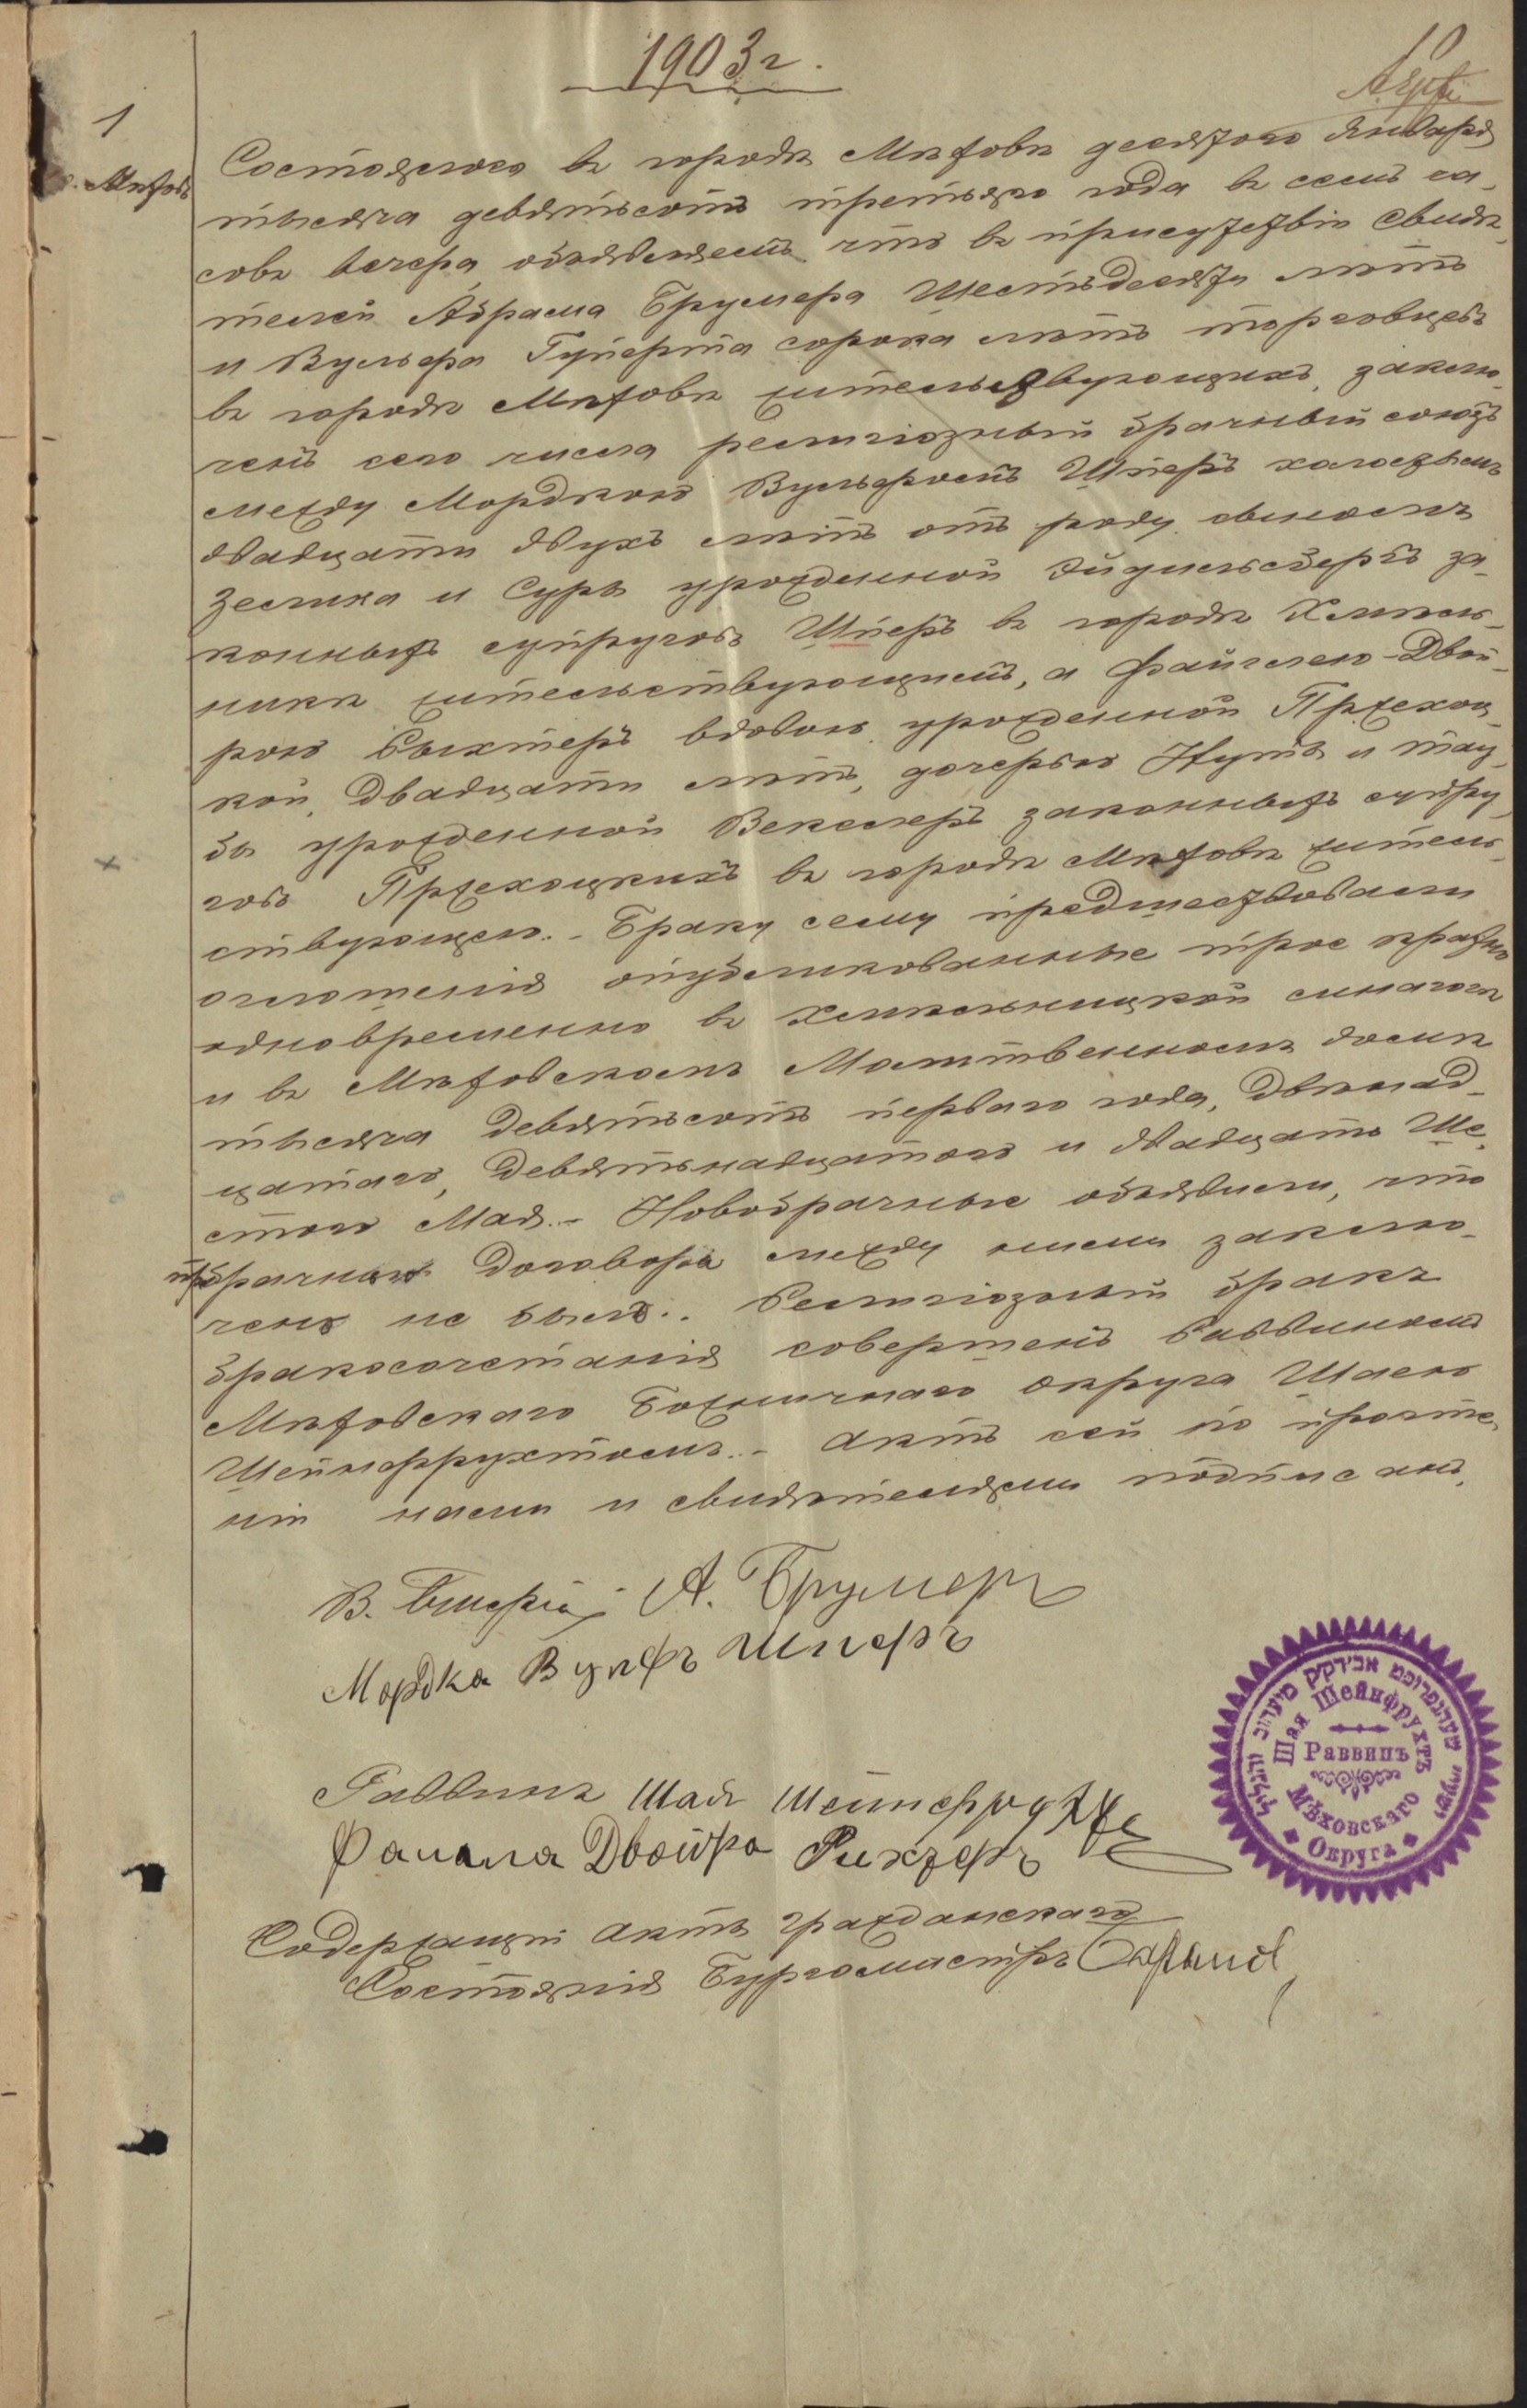 1903 г.
10
1
г. Мѣховъ
Состоялось въ городѣ Мѣховѣ десятого Января
тысяча девятьсотъ третьяго года въ семь ча-
совъ вечера, объявляемъ что въ присутствіи свидѣ-
телей Абрама Брумера Шестьдесяти лѣтъ
и Вульфа сорока лѣтъ торговцевъ
въ городѣ Мѣховѣ жительствующихъ, заклю-
ченъ сего числа религіозный брачный союзъ
между Мордкою Вульфомъ Шперъ холостымъ
двадцати двухъ лѣтъ отъ роду сыномъ
Зелика и Суры урожденной за-
конныхъ супруговъ Шперъ въ городѣ Хмѣль-
никѣ жительствующимъ, а Файглею-Двой-
рою Рыхтеръ вдовою урожденной Пржехоц-
кой, Двадцати лѣтъ, дочерью Нуты и Тау-
бы урожденной Векслеръ законныхъ супру-
говъ Пржехоцкихъ въ городѣ Мѣховѣ житель-
ствующею. - Браку сему предшествовали
оглашенія опубликованные трое кратно
одновременно въ Хмѣльницкой синагогѣ
и въ Мѣховскомъ Молитвенномъ домѣ
тысяча Девятьсотъ перваго года, Двѣнад-
цатаго, Девятьнадцатого и двадцать Ше-
стого Мая. - Новобрачные объявили, что
брачнаго Договора между ними заклю-
чено не было. Религіозный бракъ
бракосочетанія совершенъ Раввиномъ
Мѣховскаго Божничнаго округа Шаею
Шейнфрухтомъ. - Актъ сей по прочте-
ніи нами и свидѣтелями подписанъ.
В. А. Брумеръ
Мордка Вульфъ Шперъ
Раввинъ Шая Шейнфрухтъ
Файгла Двойра Рихтеръ
Содержащій акты гражданскаго
Состоянія Бургомистръ
Шая Шейнфрухтъ
Раввинъ
Мѣховскаго
Округа